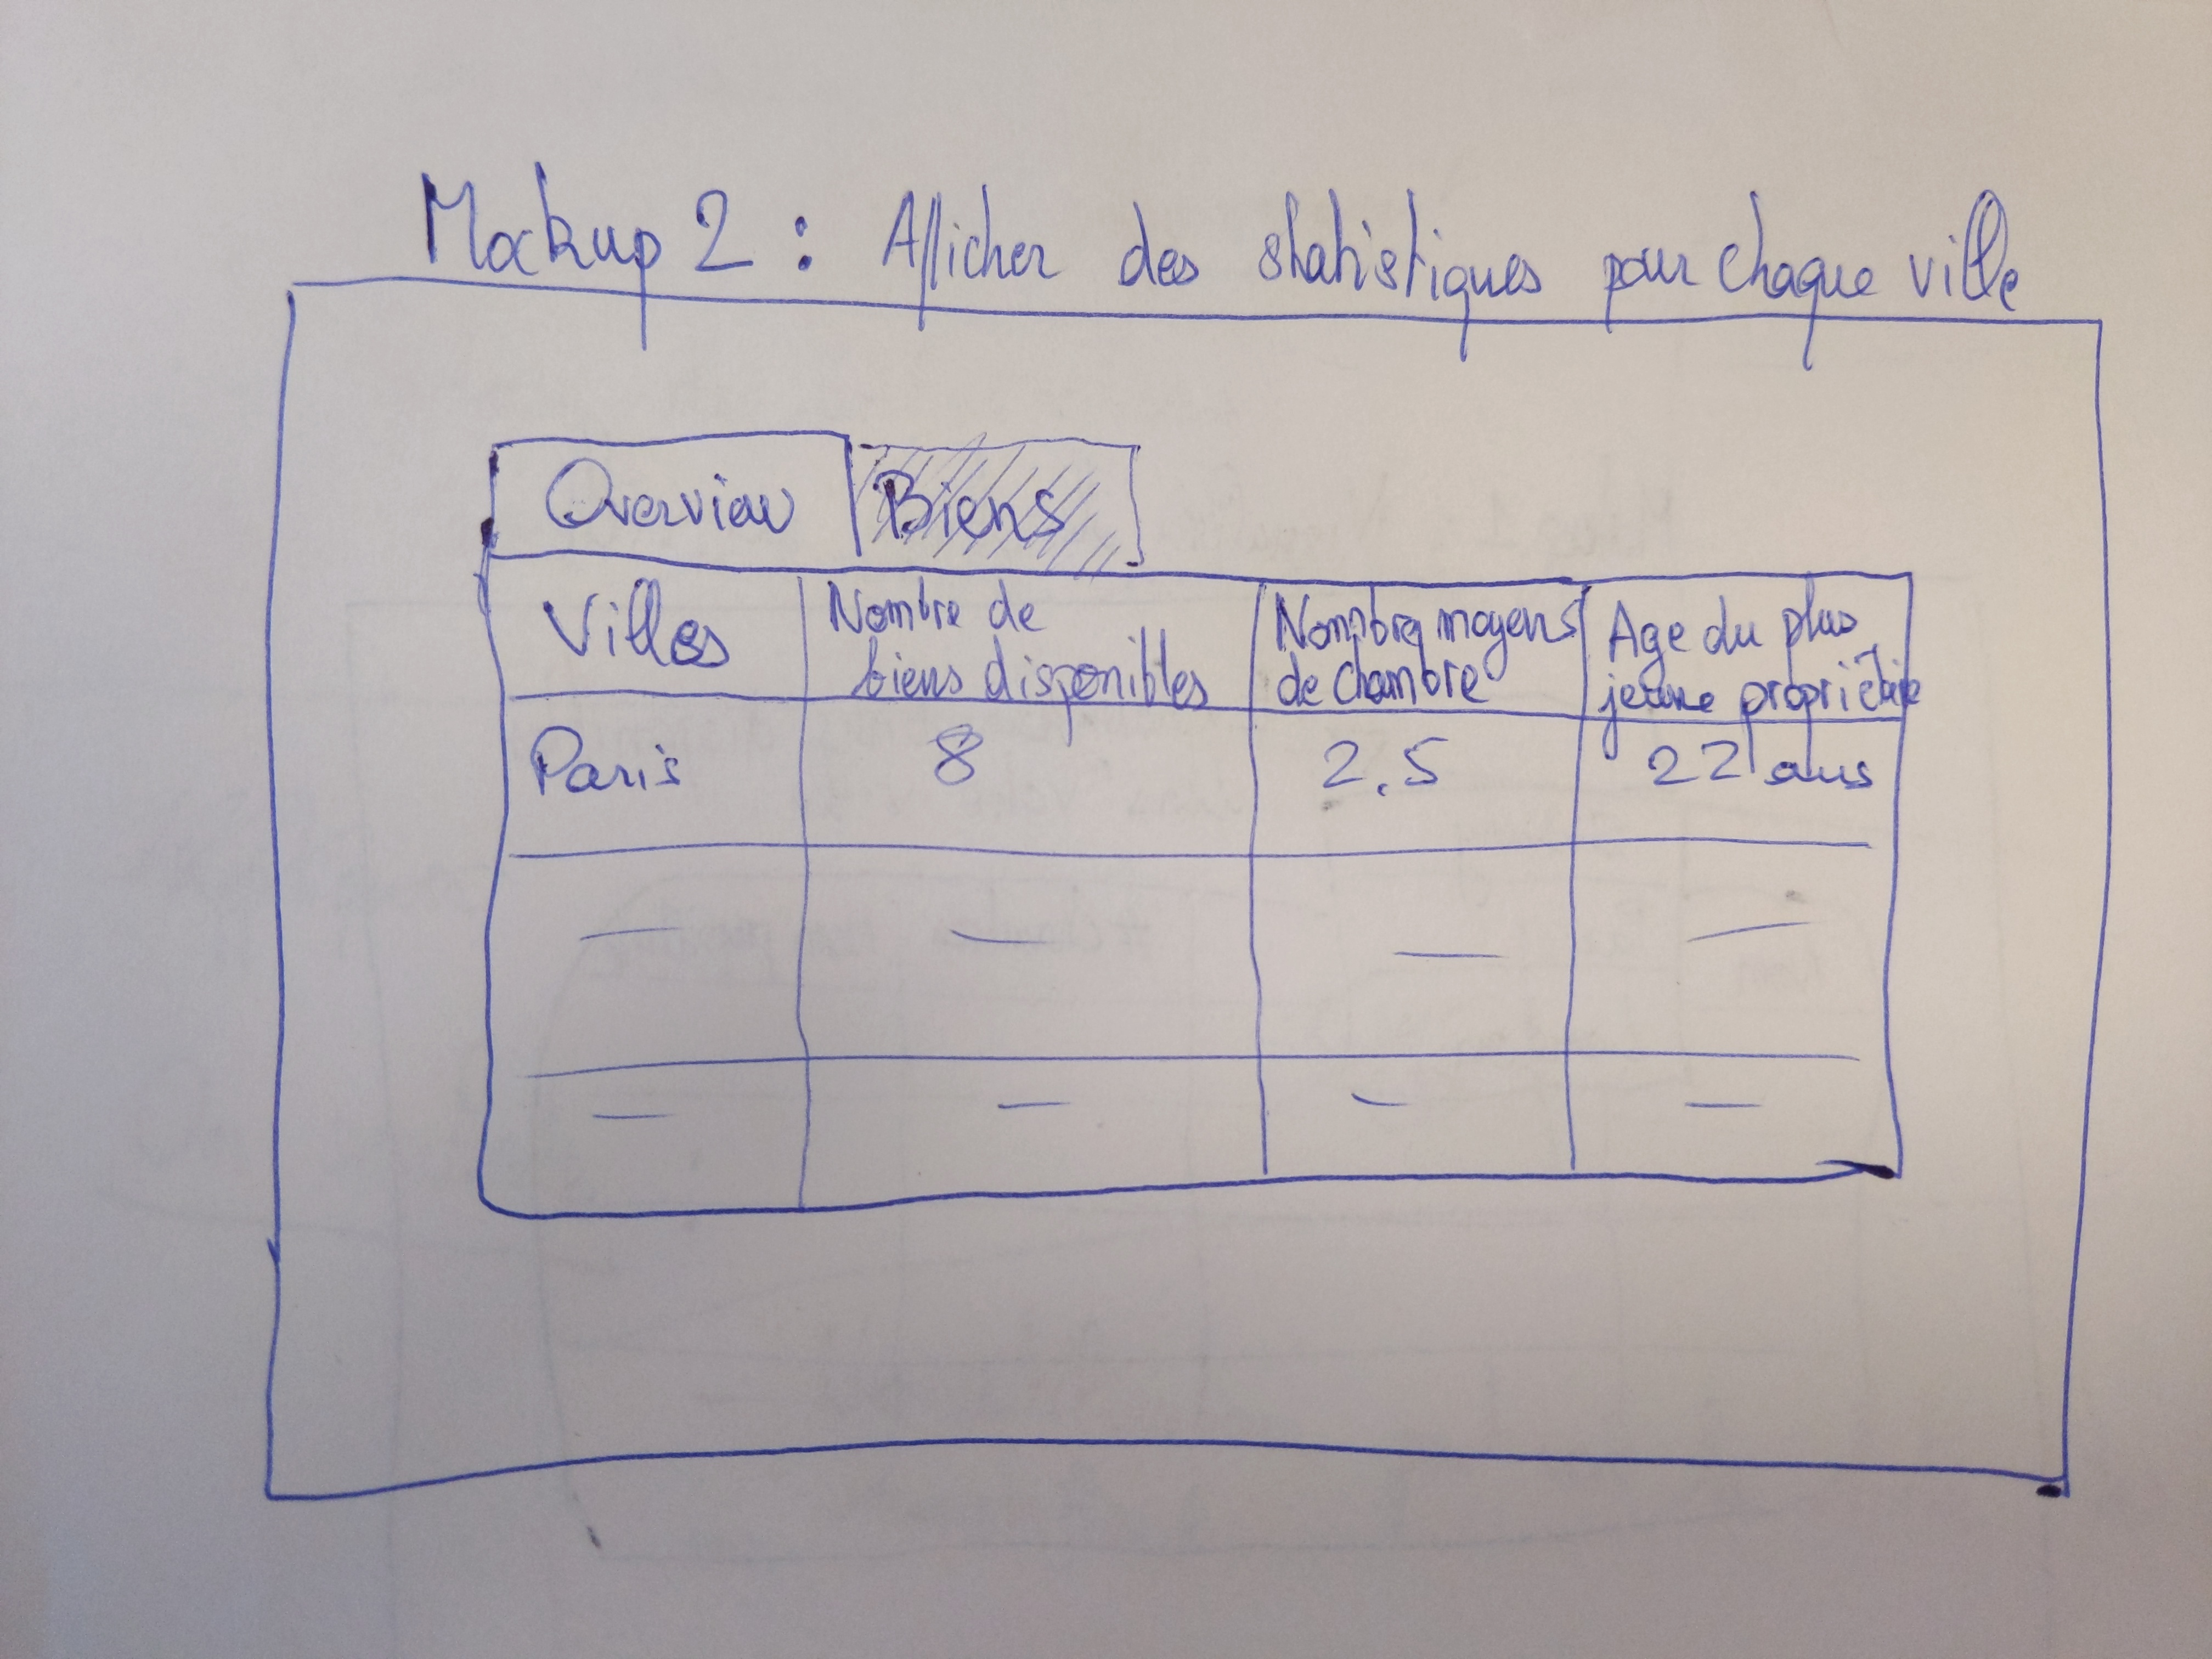 Mockup 2 : Afficher des statistiques pour chaque ville
Overview Biens
Villes
Nombre de
biens disponibles
Nombre moyens
de chambre
Age du plus
jeune propriétaire
Paris 8 2.5 22 ans
— — — —
— — — —